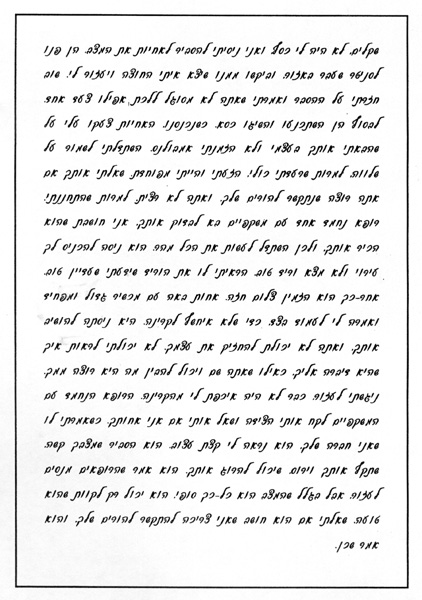 שקלים. לא היה לי כסף ואני ניסיתי להסביר לאחיות את המצב. הן פנו
לסניטר שעבר באזור. וביקשו ממנו שיצא איתי החוצה ויעזור לי. שוב
חזרתי על ההסבר ואמרתי שאתה לא מסוגל ללכת, אפילו צעד אחד.
לבסוף הן השתכנעו והשיגו כסא. כשנכנסנו. האחיות צעקו עלי על
שהבאתי אותך בעצמי ולא הזמנתי אמבולנס. השתדלתי לשמור על
שלווה. למרות שרעדתי כולי. הזעתי והייתי מפוחדת. שאלתי אותך אם
אתה רוצה שנתקשר להורים שלך. ואתה לא רצית. למרות שהתחננתי.
רופא נחמד אחד עם משקפיים בא לבדוק אותך. אני חושבת שהוא
הכיר אותך. ולכן השתדל לעשות את הכל מהר. הוא ניסה להכניס לך
עירוי ולא מצא וריד טוב. הראיתי לו את הוריד שידעתי שעדיין טוב.
אחר-כך הוא הזמין צילום חזה. אחות באה עם מכשיר גדול ומפחיד
ואמרה לי לעמוד בצד. כדי שלא איחשף לקרינה. היא ניסתה להושיב
אותך. ואתה לא יכולת להחזיק את עצמך. לא יכולתי לראות איך
שהיא דיברה אליך. כאילו שאתה שם ויכול להבין מה היא רוצה ממך.
ניגשתי לעזור. כבר לא היה איכפת לי מהקרינה. הרופא הנחמד עם
המשקפיים לקח אותי הצידה ושאל אותי אם אני אחותך. כשאמרתי לו
שאני חברה שלך. הוא נראה לי קצת עצוב. הוא הסביר שמצבך קשה.
שתקף אותך וירוס שיכול להרוג אותך. הוא אמר שהרופאים מנסים
לעזור. אבל בגלל שהמצב הוא כל-כך סופי. הוא יכול רק לקוות שהוא
טועה. שאלתי אם הוא חושב שאני צריכה להתקשר להורים שלך. והוא
אמר שכן.